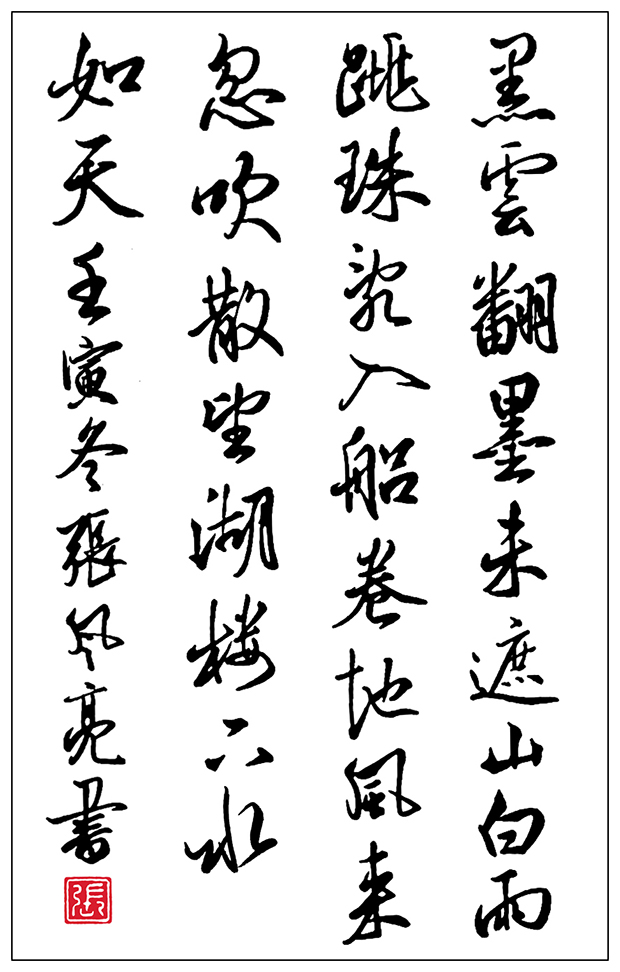 黑雲翻墨未遮山白雨
跳珠乱入船卷地風来
忽吹散望湖楼下水
如天壬寅冬張风亮書
張